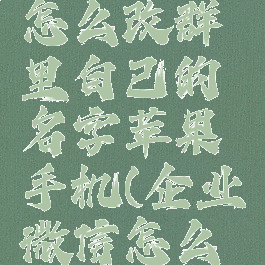 怎么改群
里自己的
名字苹果
手机(企业
微信怎么